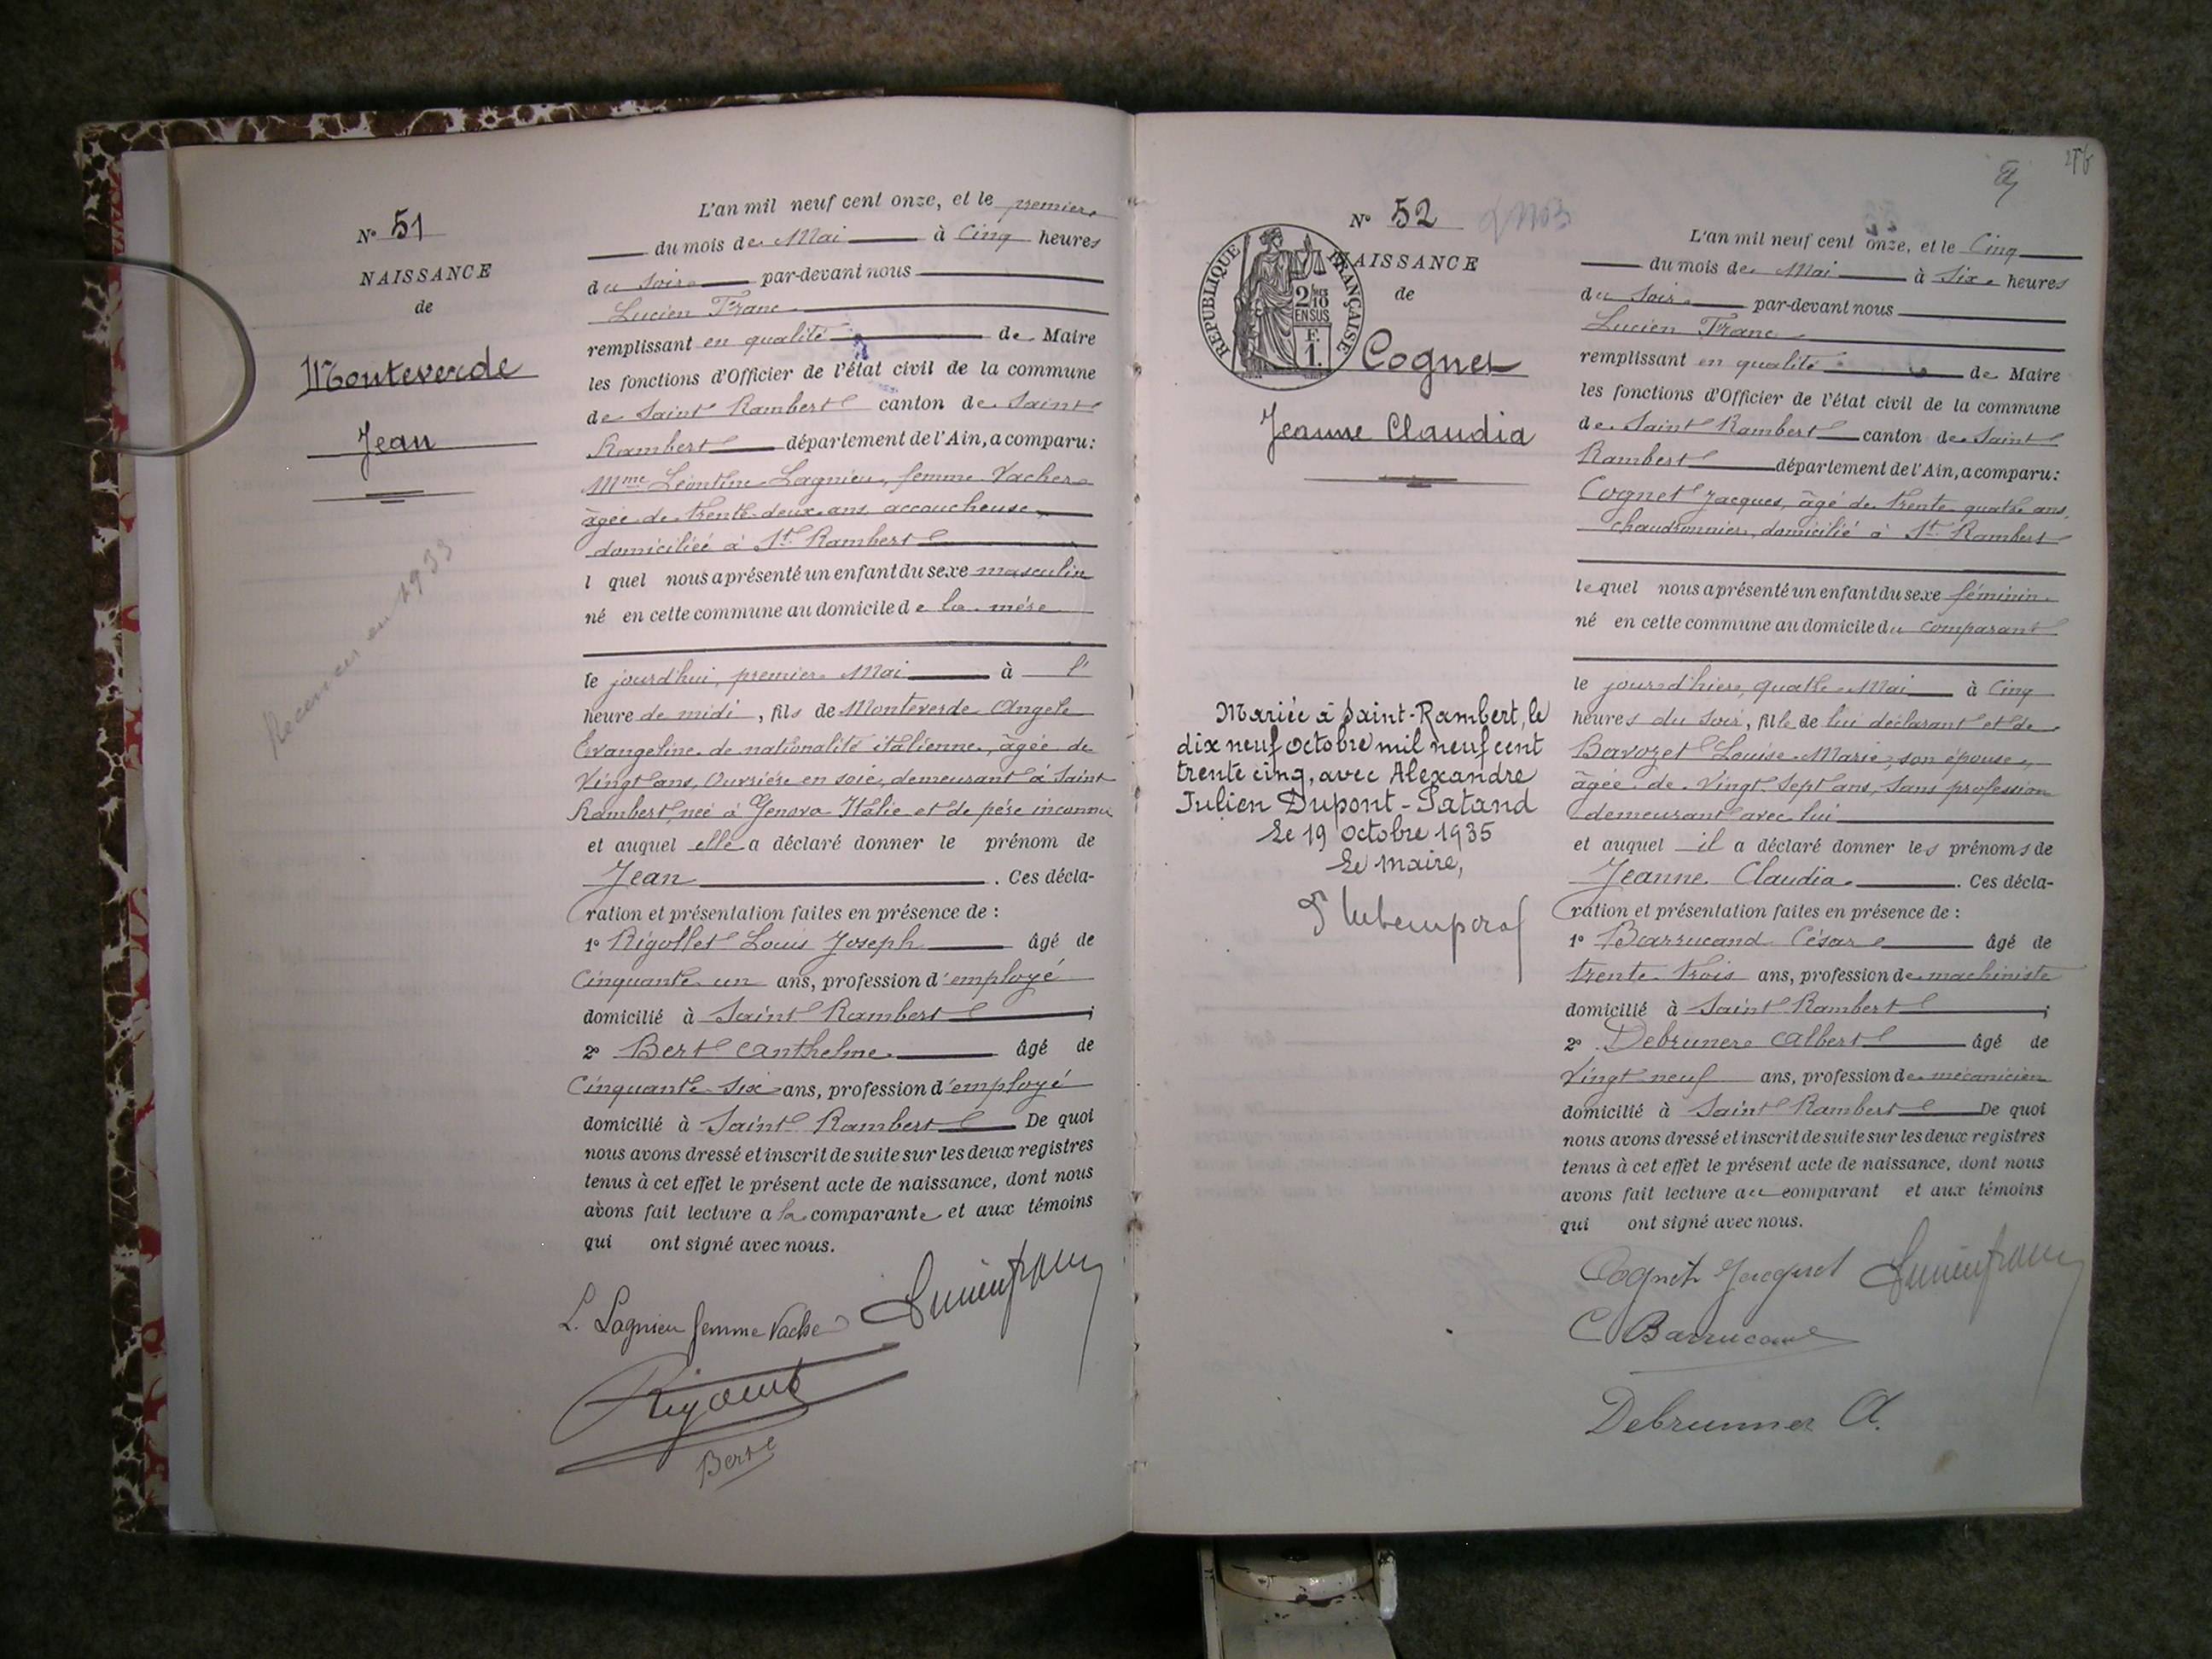 N° 51
NAISSANCE
de
Monteverde
Jean
en 1933
L'an mil neuf cent onze, et le premier
du mois de Mai à Cinq heures
du soir par-devant nous
Lucien Franc
remplissant en qualité de Maire
les fonctions d'Officier de l'état civil de la commune
de Saint Rambert canton de Saint
Rambert département de l'Ain, a comparu:
Mme Léontine Lagnieu, femme Vacher
âgée de trente deux ans, accoucheuse,
domiciliée à St. Rambert
l quel nous a présenté un enfant du sexe masculin
né en cette commune au domicile de la mére
le jourd'hui, premier Mai à l'
heure de midi, fils de Monteverde Angele
Evangeline de nationalité italienne, âgée de
Vingt ans, Ouvriére en soie, demeurant à Saint
Rambert, née à Genova Italie et de pére inconnu
et auquel elle a déclaré donner le prénom de
Jean. Ces décla-
ration et présentation faites en présence de :
1° Rigollet Louis Joseph âgé de
Cinquante un ans, profession d'employé
domicilié à Saint Rambert ;
2° Bert Anthelme âgé de
Cinquante six ans, profession d'employé
domicilié à Saint Rambert De quoi
nous avons dressé et inscrit de suite sur les deux registres
tenus à cet effet le présent acte de naissance, dont nous
avons fait lecture a la comparante et aux témoins
qui ont signé avec nous.
L. Lagnieu femme Vacher Lucien franc
Bert
N° 52
RÉPUBLIQUE FRANÇAISE
2/10
EN SUS
F.
1.
NAISSANCE
de
Cognet
Jeanne Claudia
Mariée à Saint-Rambert, le
dix neuf octobre mil neuf cent
trente cinq, avec Alexandre
Julien Dupont-Patand
Le 19 octobre 1935
Le maire,
L'an mil neuf cent onze, et le Cinq
du mois de Mai à Six heures
du soir par-devant nous
Lucien Franc
remplissant en qualité de Maire
les fonctions d'Officier de l'état civil de la commune
de Saint Rambert canton de Saint
Rambert département de l'Ain, a comparu:
Cognet Jacques, âgé de trente quatre ans,
chaudronnier, domicilié à St. Rambert
lequel nous a présenté un enfant du sexe féminin
né en cette commune au domicile du comparant
le jour d'hier, quatre Mai à Cinq
heures du soir, fille de lui déclarant et de
Bavozet Louise Marie, son épouse,
âgée de Vingt Sept ans, sans profession
demeurant avec lui
et auquel il a déclaré donner les prénoms de
Jeanne Claudia. Ces décla-
ration et présentation faites en présence de :
1° Barrucand César âgé de
trente trois ans, profession de machiniste
domicilié à Saint Rambert ;
2° Debruner Albert âgé de
Vingt neuf ans, profession de mécanicien
domicilié à Saint Rambert De quoi
nous avons dressé et inscrit de suite sur les deux registres
tenus à cet effet le présent acte de naissance, dont nous
avons fait lecture au comparant et aux témoins
qui ont signé avec nous.
Cognet Jacques Lucien franc
C Barrucand
Debrunner A.